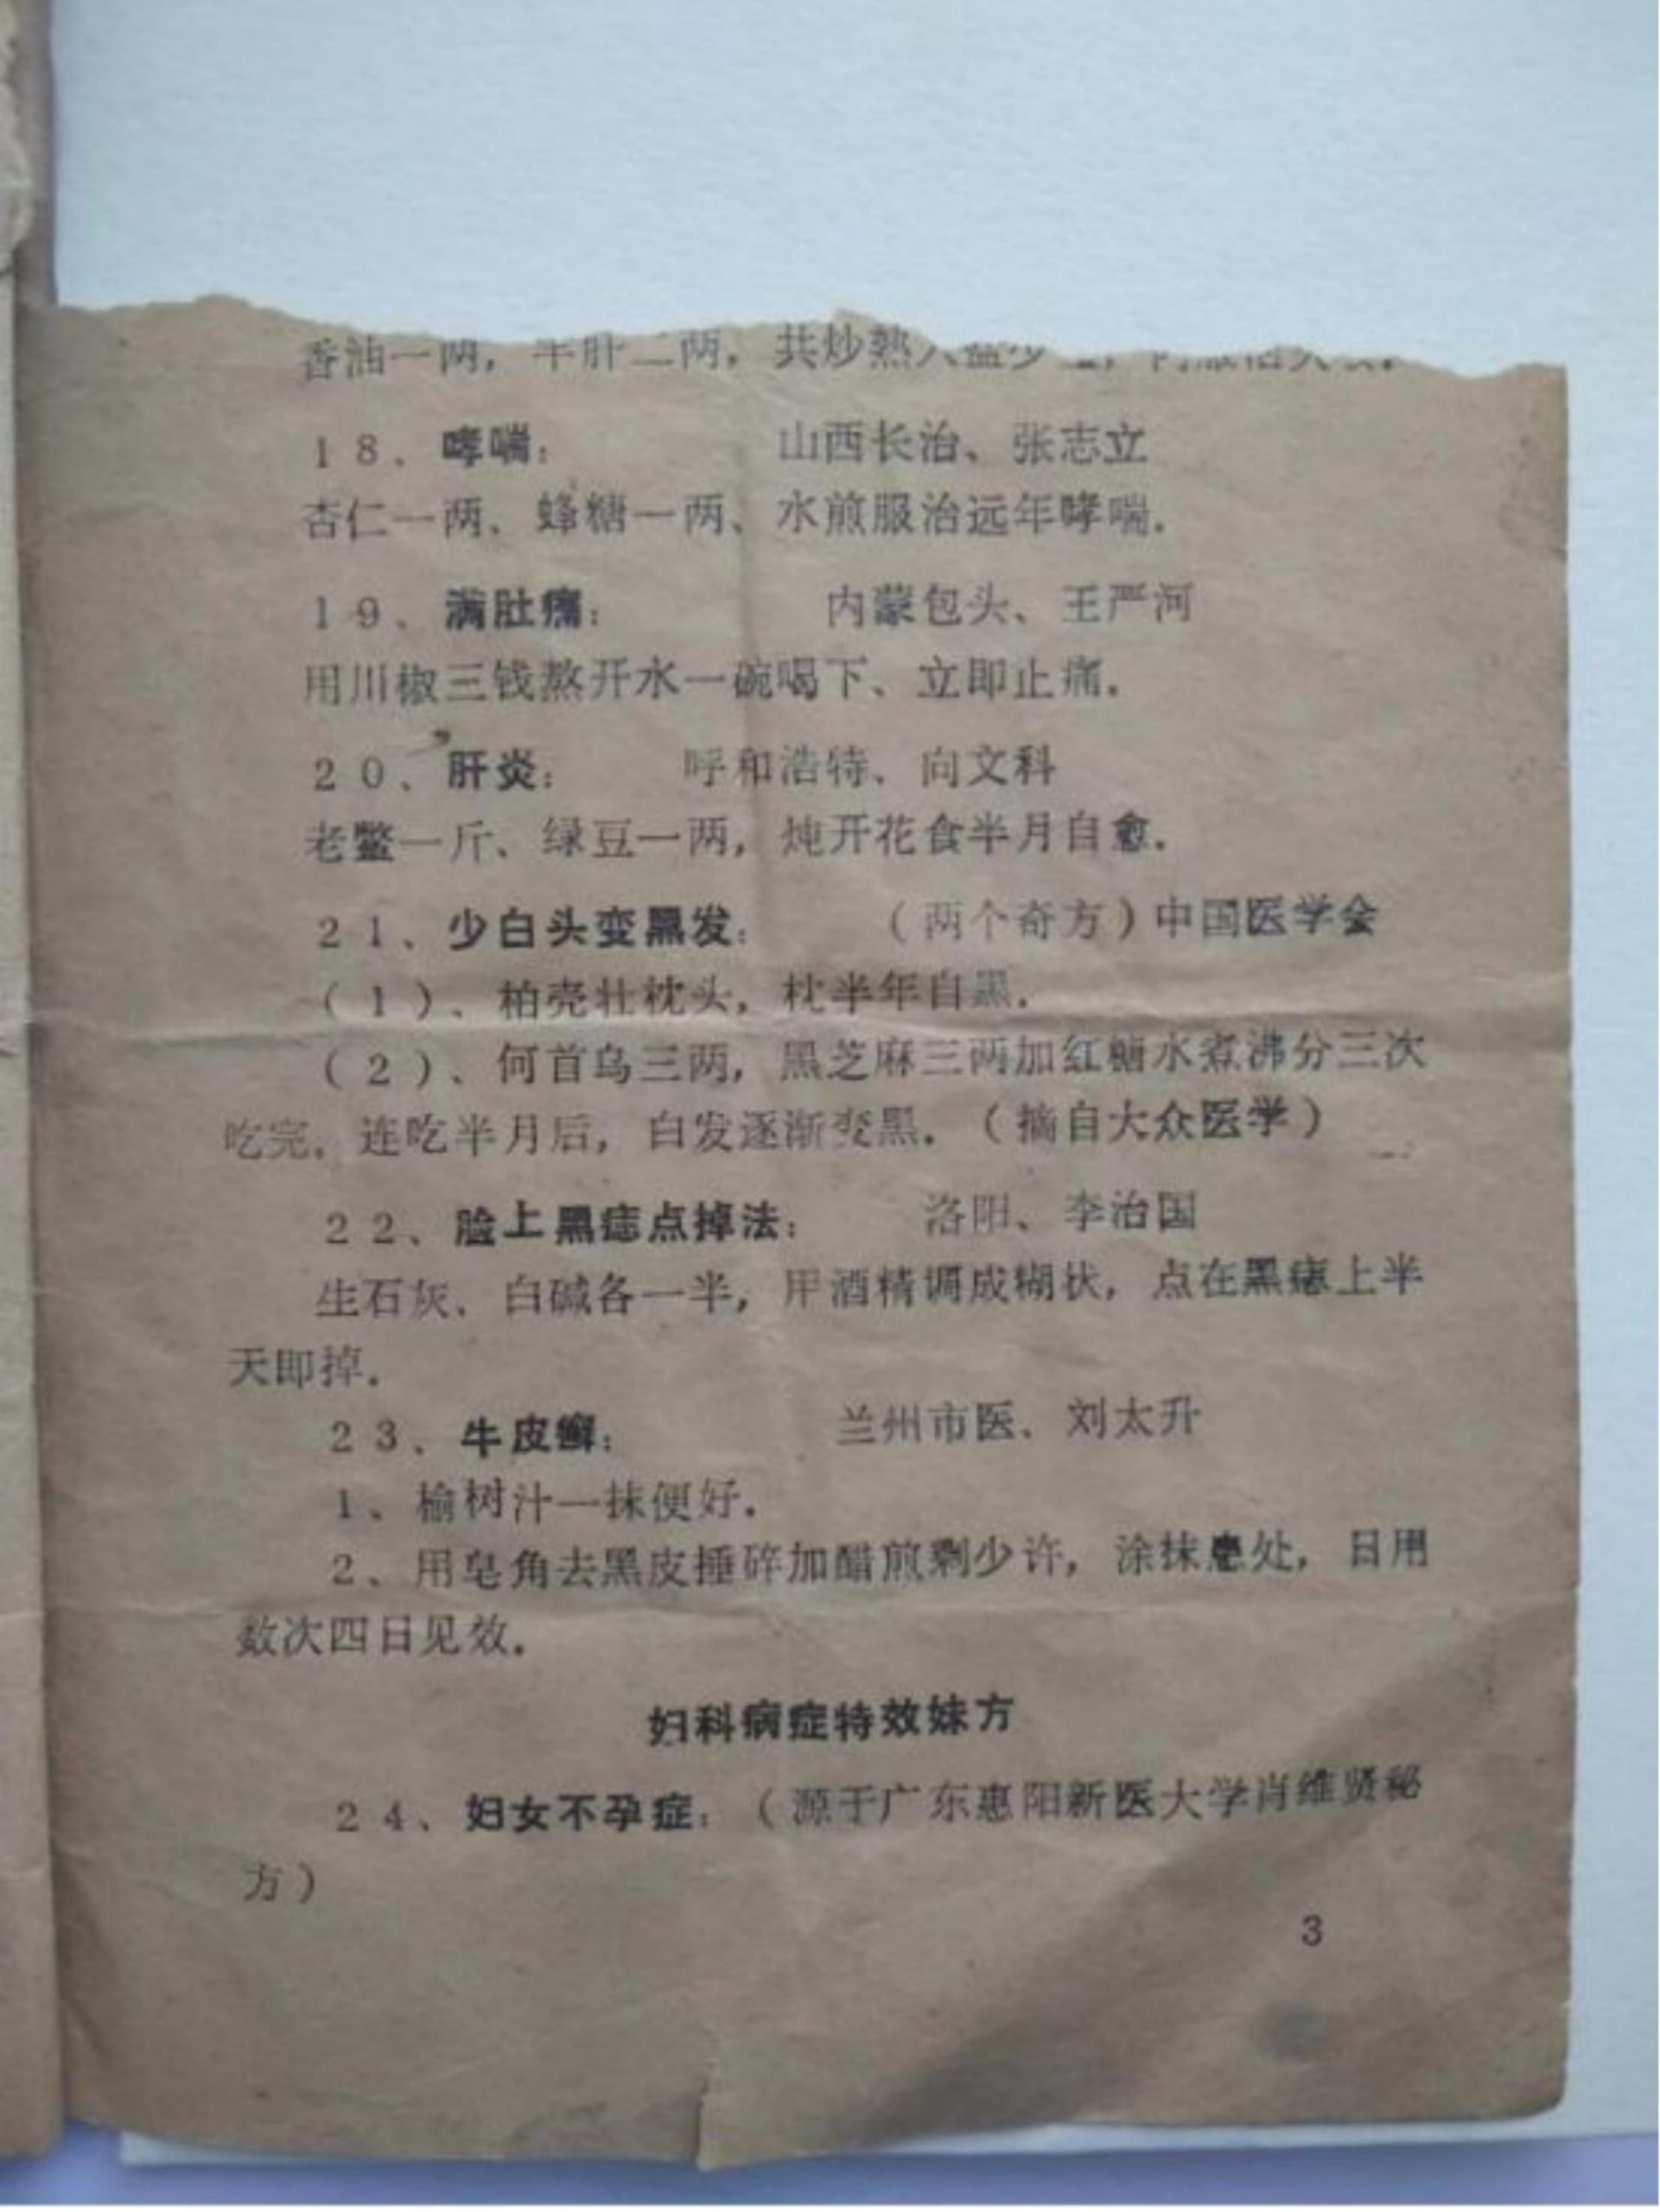 香油一两，羊肝二两，共炒熟入盐少
18、哮喘：　山西长治、张志立
杏仁一两、蜂糖一两、水煎服治远年哮喘.
19、满肚痛：　内蒙包头、王严河
用川椒三钱熬开水一碗喝下、立即止痛.
20、肝炎：　呼和浩特、向文科
老鳖一斤、绿豆一两，炖开花食半月自愈.
21、少白头变黑发：　（两个奇方）中国医学会
（1）、柏壳壮枕头，枕半年自黑.
（2）、何首乌三两，黑芝麻三两加红糖水煮沸分三次
吃完. 连吃半月后，白发逐渐变黑.（摘自大众医学）
22、脸上黑痣点掉法：　洛阳、李治国
生石灰、白碱各一半，用酒精调成糊状，点在黑痣上半
天即掉.
23、牛皮癣：　兰州市医、刘太升
1、榆树汁一抹便好.
2、用皂角去黑皮捶碎加醋煎剩少许，涂抹患处，日用
数次四日见效.
妇科病症特效妹方
24、妇女不孕症：（源于广东惠阳新医大学肖维贤秘
方）
3